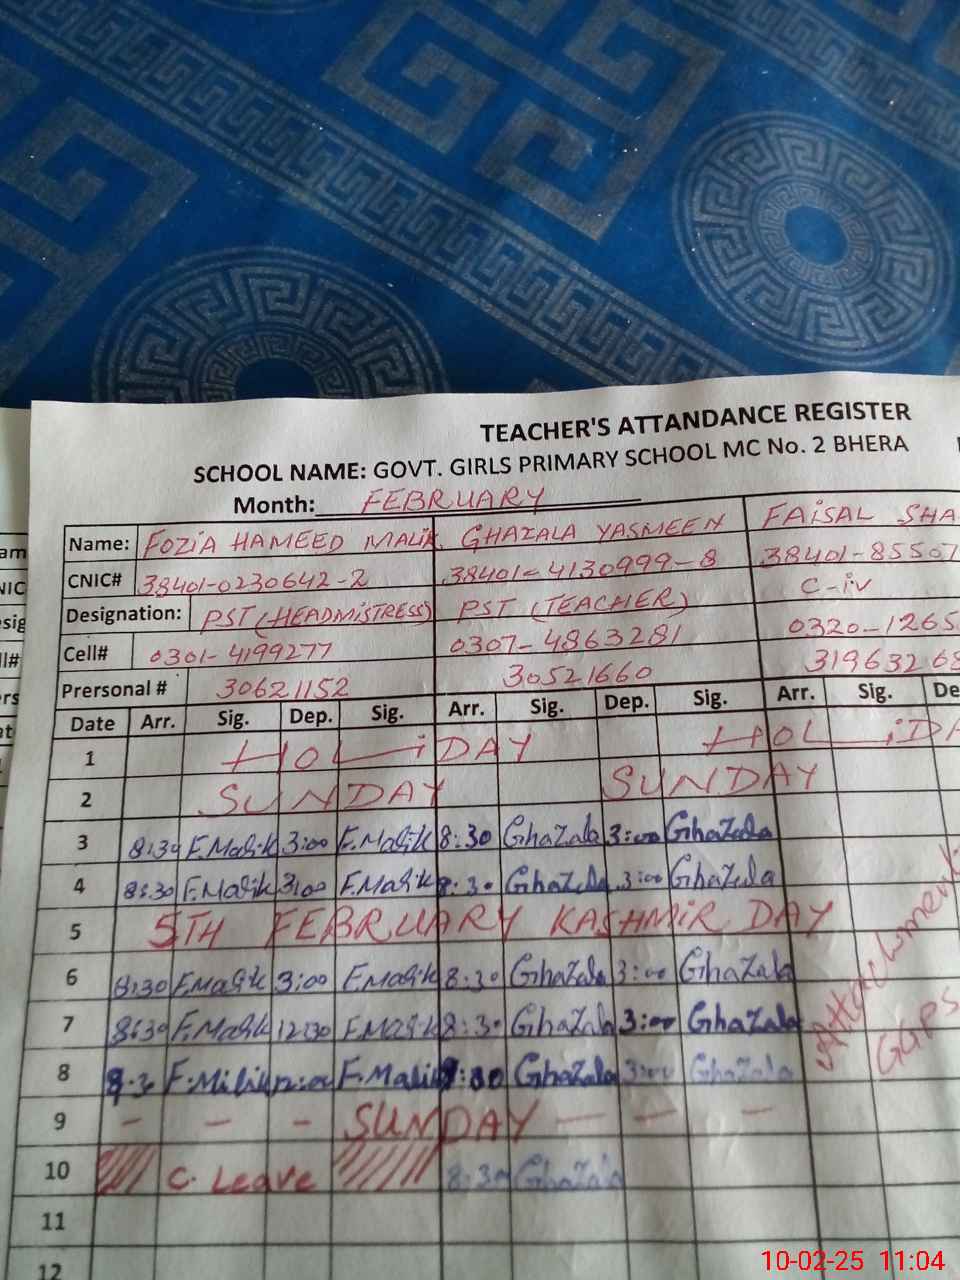 TEACHER'S ATTANDANCE REGISTER
SCHOOL NAME: GOVT. GIRLS PRIMARY SCHOOL MC No. 2 BHERA
Month: FEBRUARY
Name: FOZIA HAMEED MALIK. GHAZALA YASMEEN FAISAL SHA
CNIC# 38401-0230642-2 38401-4130999-8 38401-85507
Designation: PST (HEADMISTRESS) PST (TEACHER) C-iv
Cell# 0301-4199277 0307-4863281 0320-1265
Prersonal # 30621152 30521660 31963268
Date Arr. Sig. Dep. Sig. Arr. Sig. Dep. Sig. Arr. Sig. De
1 HOLiDAY HOLiDA
2 SUNDAY SUNDAY
3 8:30 F.Malik 3:00 F.Malik 8:30 Ghazala 3:00 Ghazala
4 8:30 F.Malik 3:00 F.Malik 8:30 Ghazala 3:00 Ghazala
5 5TH FEBRUARY KASHMIR DAY
6 8:30 F.Malik 3:00 F.Malik 8:30 Ghazala 3:00 Ghazala
7 8:30 F.Malik 12:30 F.Malik 8:30 Ghazala 3:00 Ghazala
8 8:30 F.Malik F.Malik Ghazala 3:00 Ghazala
Attachment
GGPS
9 - - - SUNDAY - - -
10 C. Leave 8:30 Ghazala
11
12
10-02-25 11:04